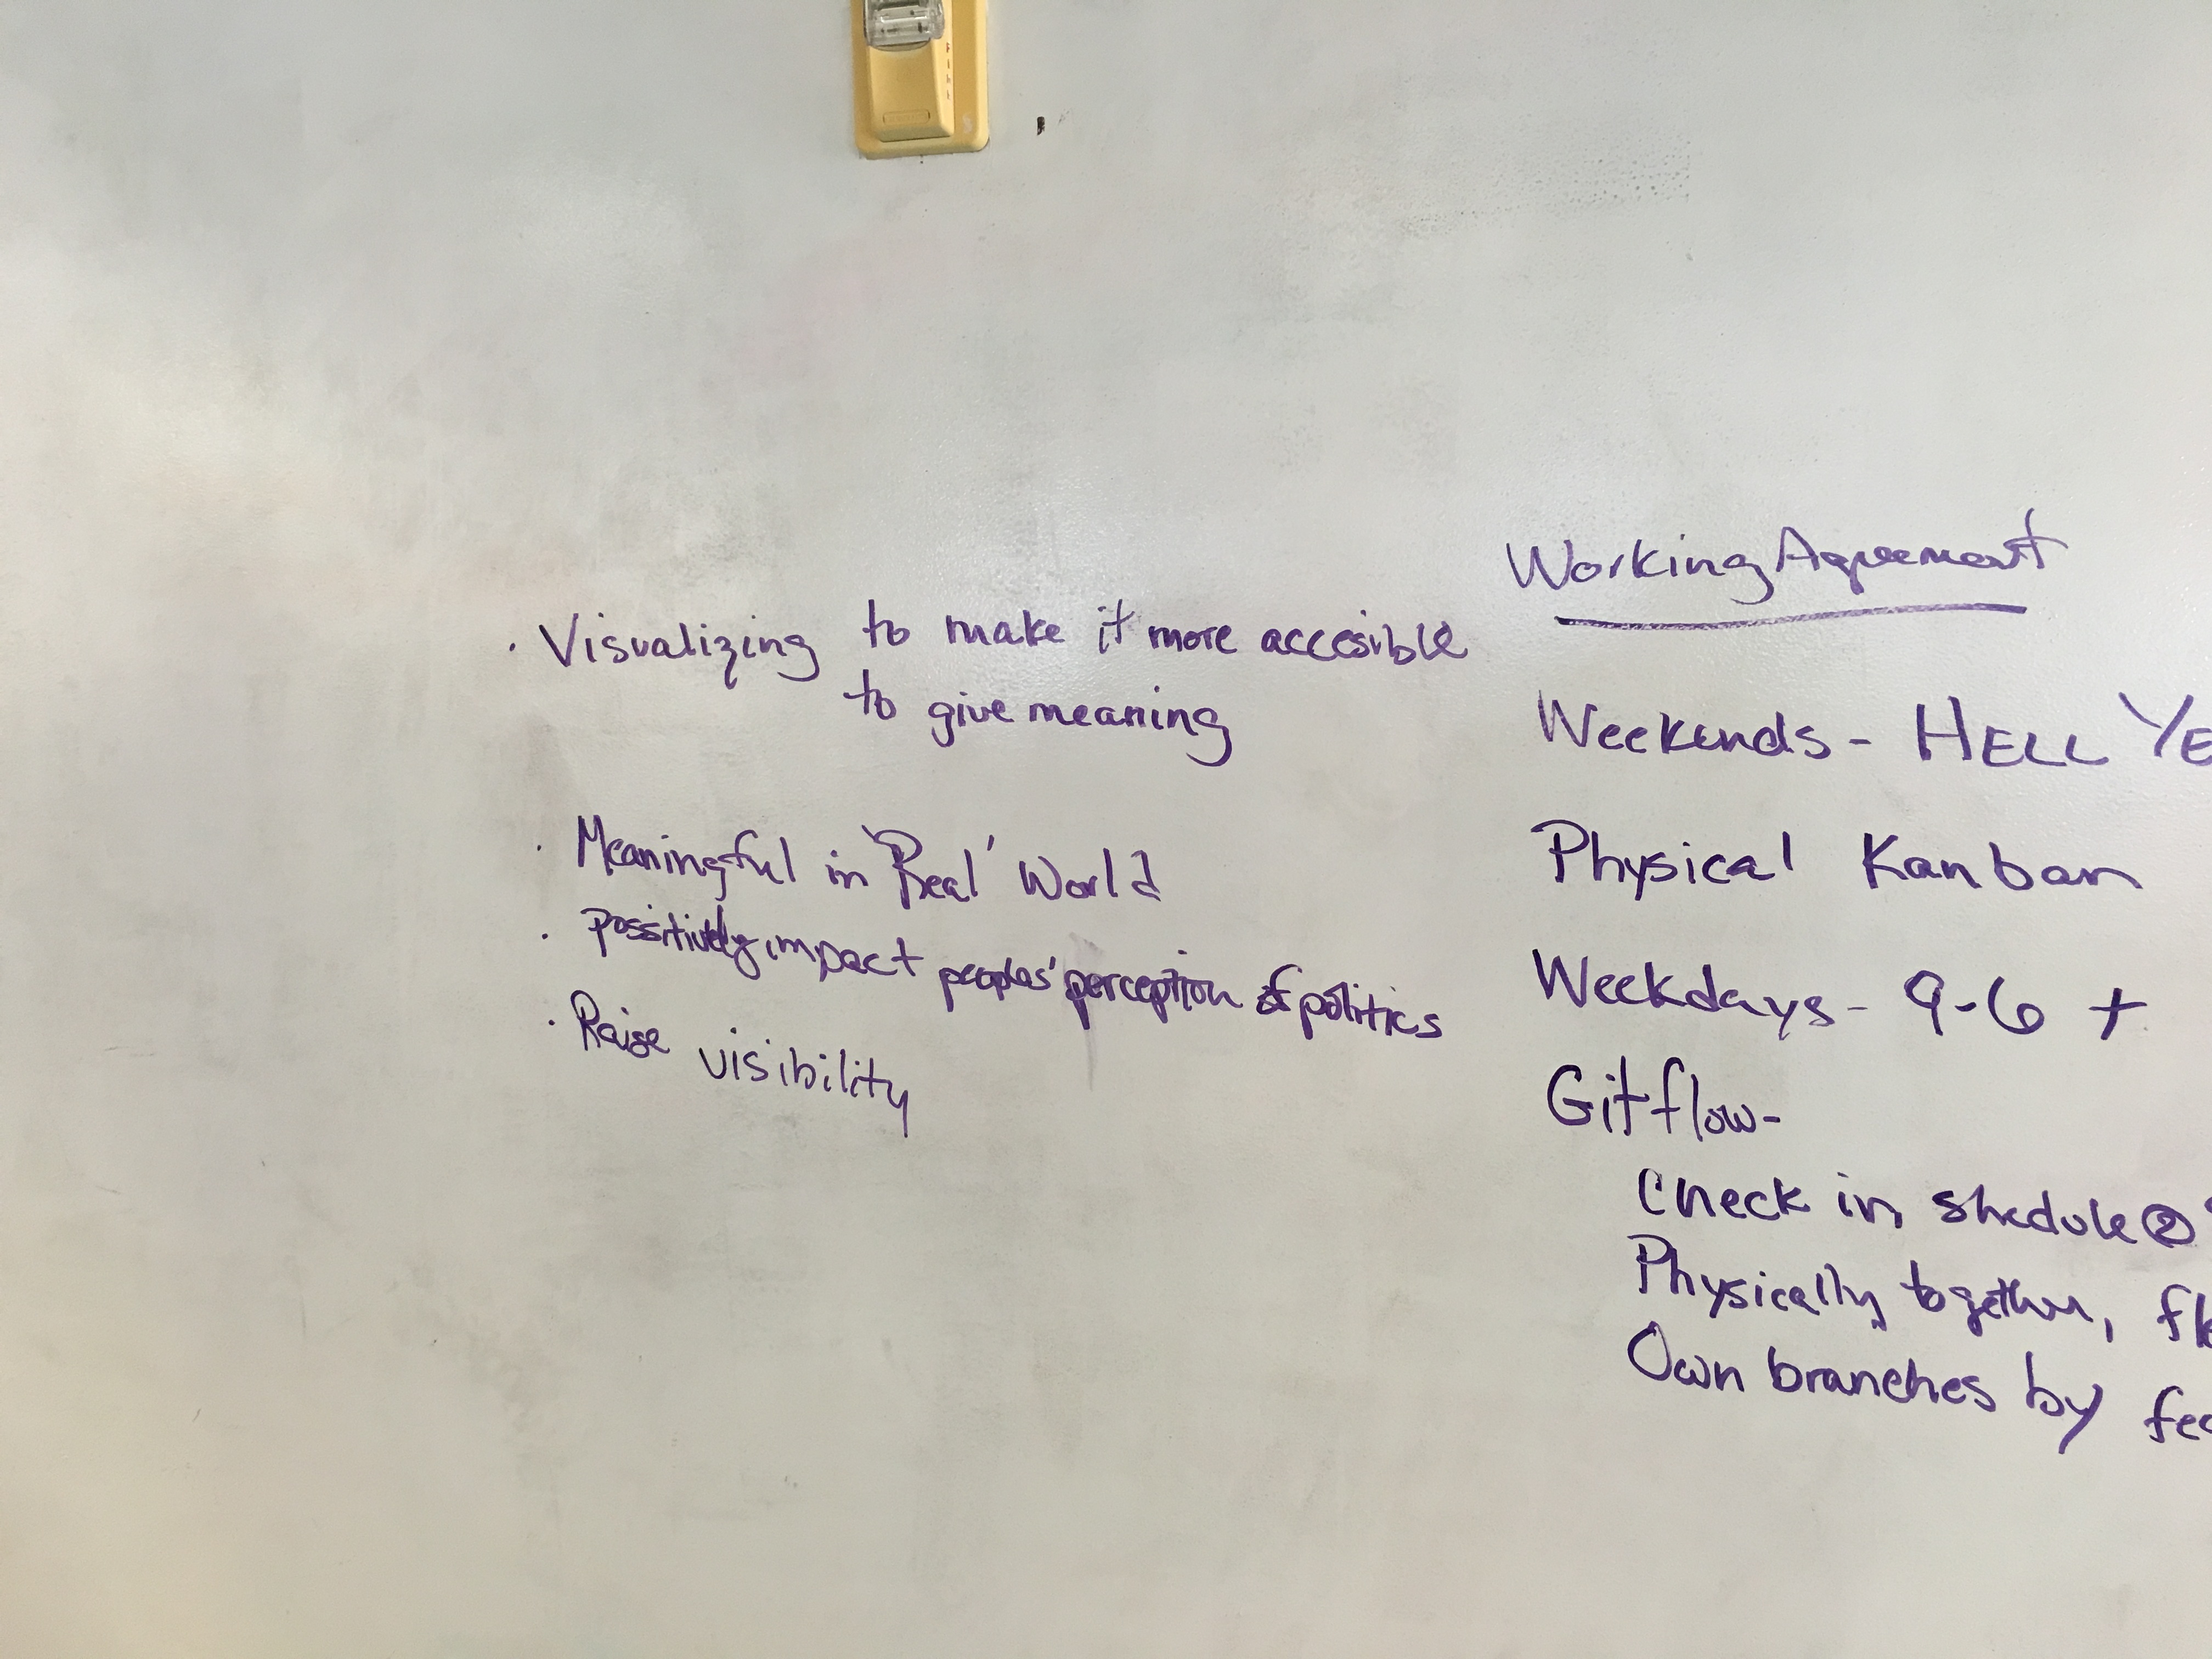 · Visualizing to make it more accesible
to give meaning
· Meaningful in 'Real' World
· Possitively impact peoples' perception of politics
· Raise visibility
Working Agreement
Weekends - HELL YE
Physical Kanban
Weekdays - 9-6 +
Gitflow-
Check in shedule @
Physically together,
Own branches by